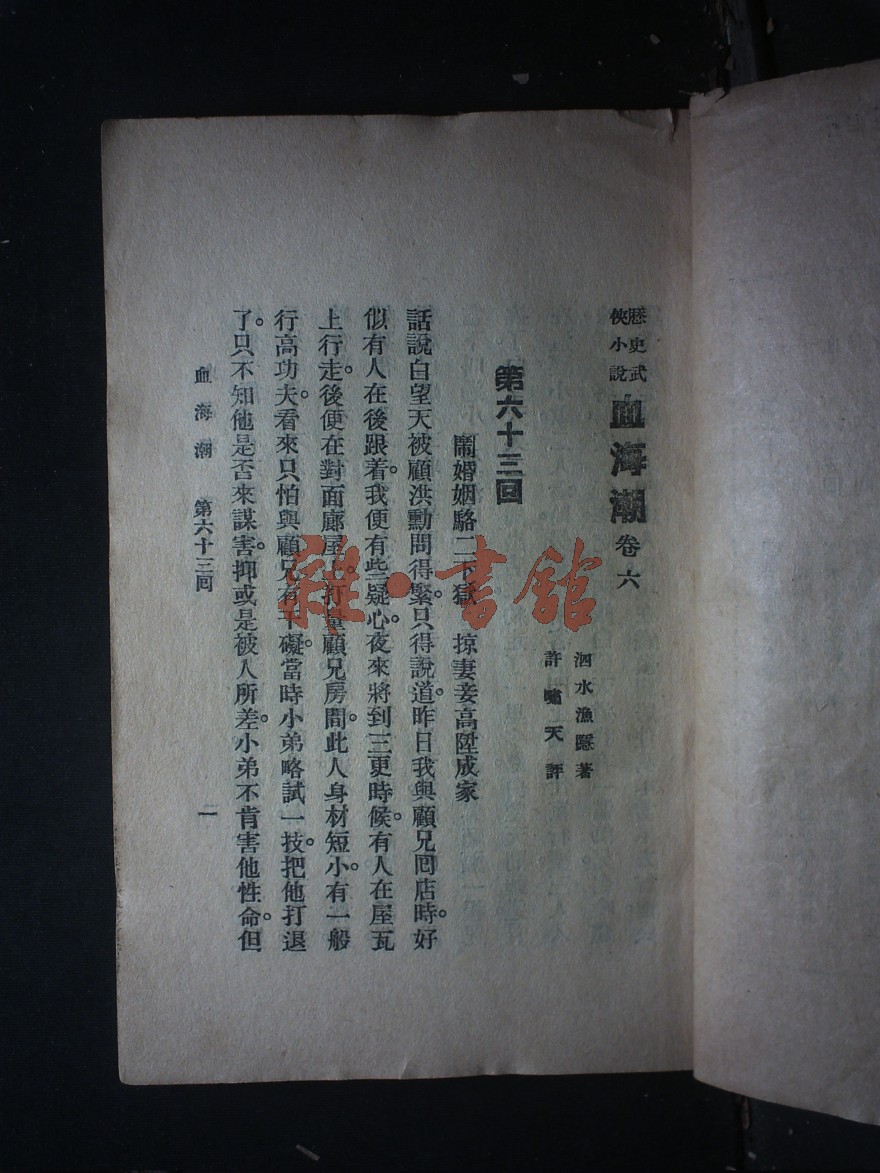 歷史武
俠小說
血海潮 卷六
泗水漁隱著
許嘯天評
第六十三回
鬧婚姻駱二下獄 掠妻妾高陞成家
話說白望天被顧洪勳問得緊。只得說道。昨日我與顧兄囘店時。好
似有人在後跟着。我便有些疑心。夜來將到三更時候。有人在屋瓦
上行走。後便在對面廊屋上。打量顧兄房間。此人身材短小。有一般
行高功夫。看來只怕與顧兄有干礙。當時小弟略試一技。把他打退
了。只不知他是否來謀害。抑或是被人所差。小弟不肯害他性命。但
血海潮 第六十三回
一
雜·書館